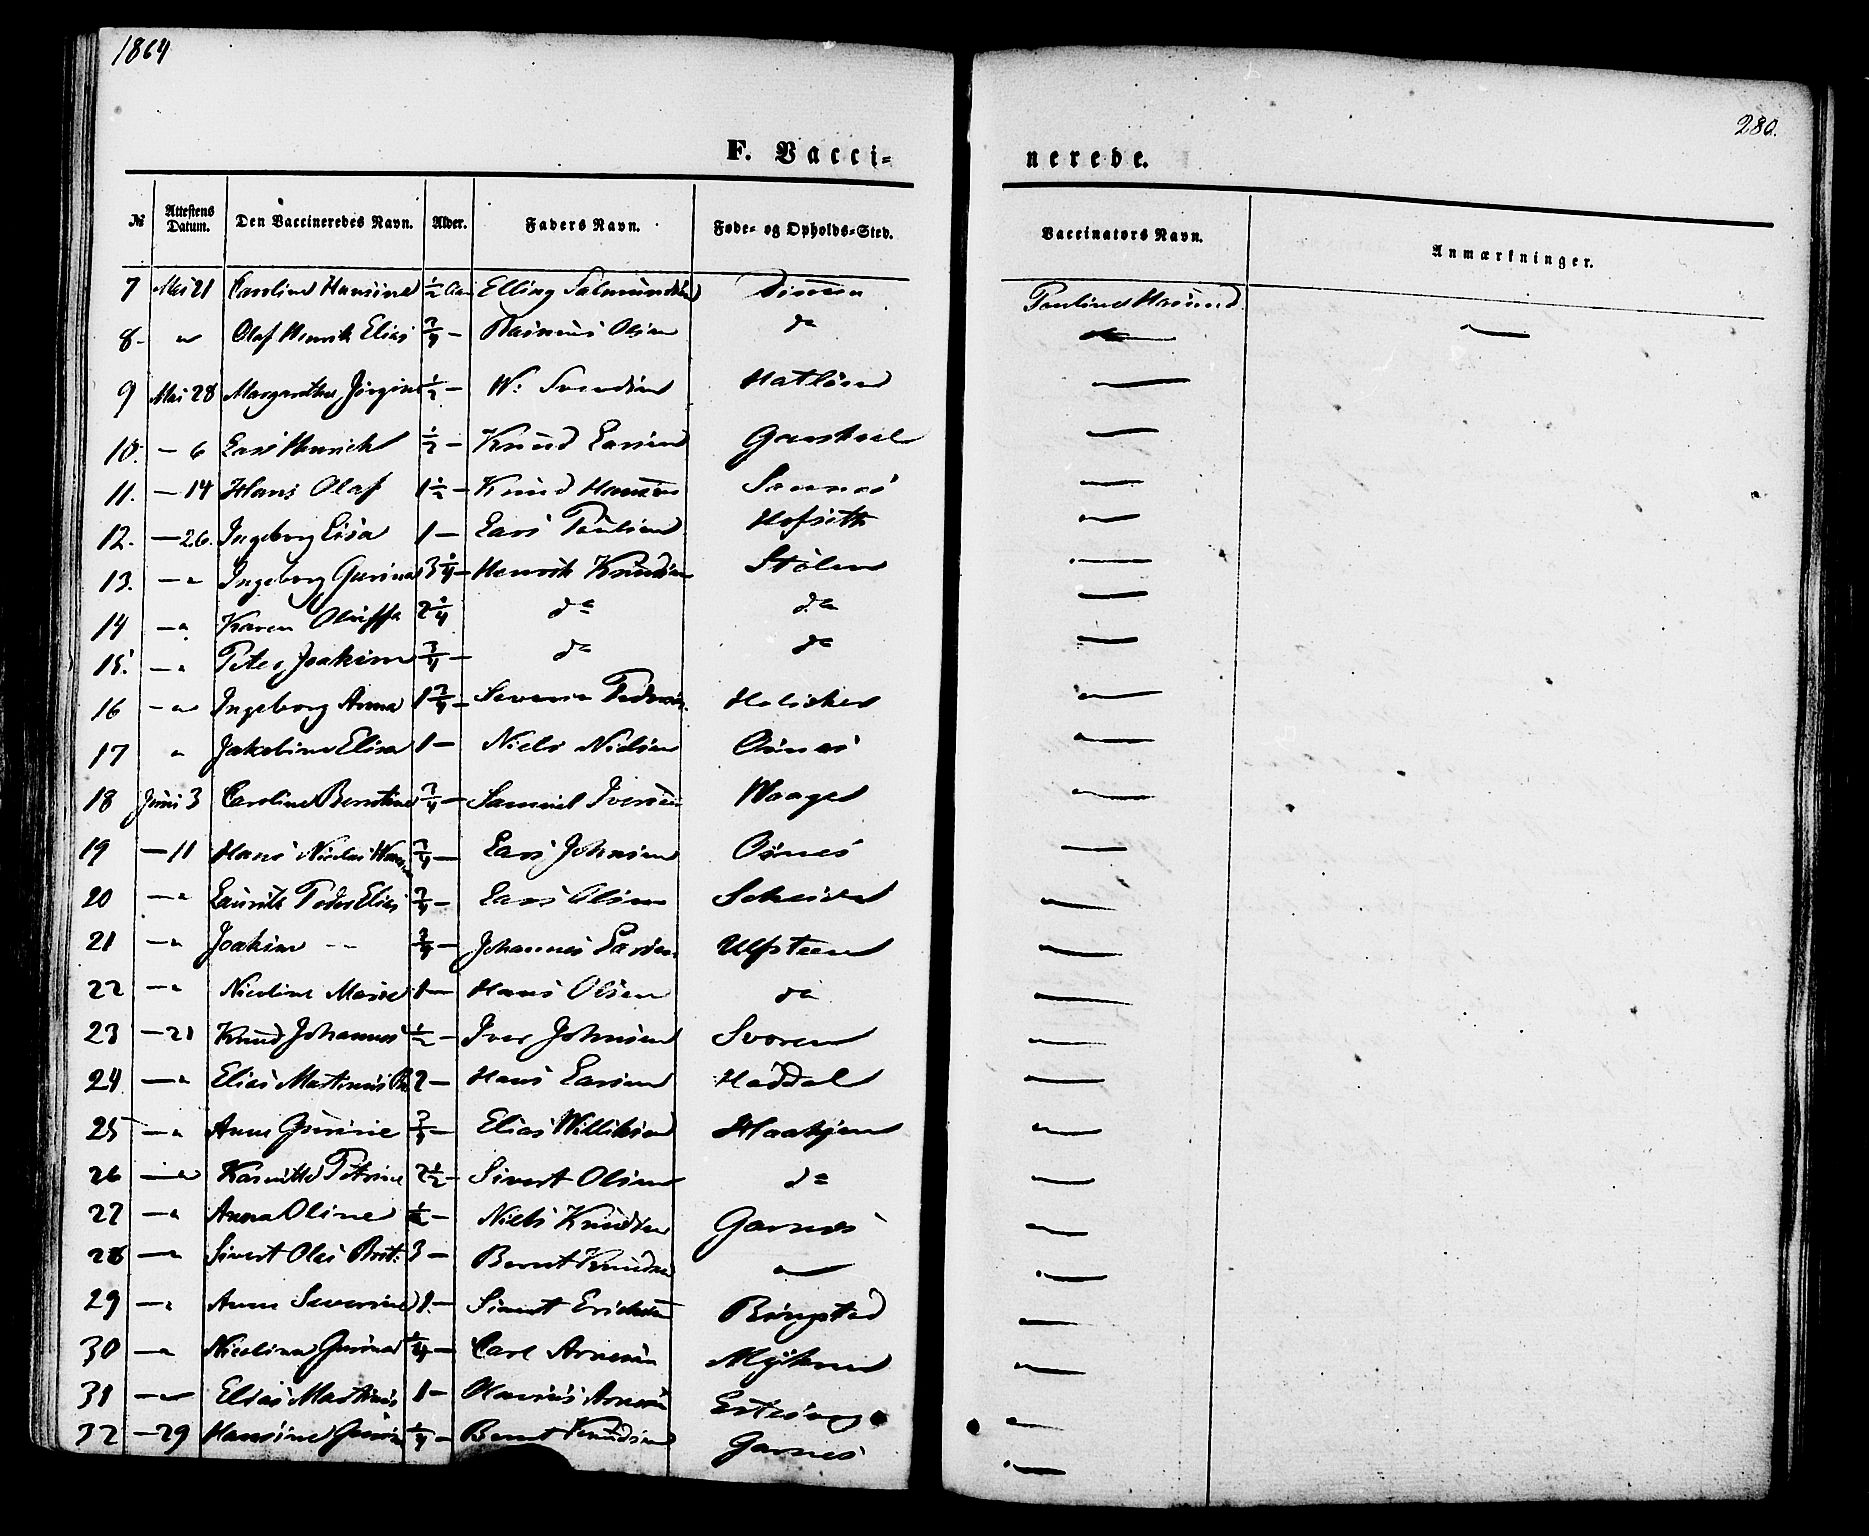 1864
280.
F. Vacci-
nerede.
№ Attestens Datum. Den Vaccineredes Navn. Alder. Faders Navn. Føde- og Opholds-Sted. Vaccinators Navn. Anmærkninger.
7 Mai 21 Caroline Hansine ½ Aar Elling Salmundsen Dimen Pauline Hasund
8 " Olaf Henrik Elias ¾ — Rasmus Olsen do — —
9 Mai 28 Margrethe Jørgine ½ — W: Svendsen Hatløen —
10. — 6 Lars Henrich ½ — Knud Larsen Gurskeel —
11. — 14 Hans Olaf 1½ — Knud Hansen Sannes —
12. — 26. Ingeborg Lisa 1 — Lars Paulsen Hofseth —
13. — " Ingeborg Gurina 3¼ — Henrik Knudsen Stølen —
14 — " Karen Oluffa 2¼ do do —
15. — " Peter Joakim ¾ — do do —
16 — " Ingeborg Anna 1¾ — Severin Pedersen —
17 " Jakobine Elisa 1 — Niels Nielsen Osnes —
18 Juni 3 Caroline Berntine ¾ — Samuel Iversen Waage —
19 — 11 Hans Nicolai ¾ — Lars Johnsen Osnes —
20 — " Laurits Peder Elias ¾ — Lars Olsen —
21 — " Joakim — ¾ — Johannes Larsen Ulfsteen —
22 — " Nicoline Marie 1 — Hans Olsen do —
23 — 21 Knud Johannes ½ — Iver Johnsen Svoren —
24 — " Elias Martinus 2 — Hans Larsen Haddal —
25 — " Anne Gurine ¾ — Elias Williksen Haakjen —
26 — " Petrine 2½ — Sivert Olsen do —
27 — " Anna Oline — Niels Knudsen Garnes —
28 — " Sivert Olai Brit. 3 — Bernt Knudsen " —
29 — " Anne Severine 1. — Sivert Ericksen Ringstad —
30 — " Nicolina Gurina ¼ — Carl Arnesen Myklen —
31 — " Elias Martinus 1 — Olaus Arnesen —
32 — 29 Hansine Gurine ¼ — Bernt Knudsen Garnes —